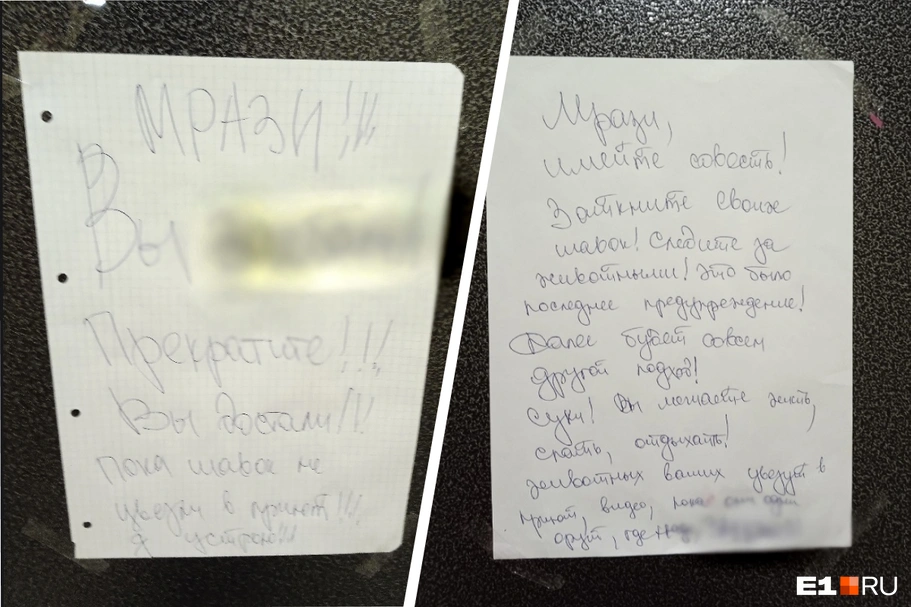 МРАЗИ!!!
В
Вы
Прекратите!!!
Вы достали!!!
Пока шавок не
увезли в приют!!!
Я устрою!!!
Мрази,
имейте совесть!
Заткните своих
шавок! Следите за
животными! Это было
последнее предупреждение!
Далее будет совсем
другой подход!
Суки! Вы мешаете жить,
спать, отдыхать!
Животных ваших увезут в
приют, видео, пока они одни
орут, где
E1.RU